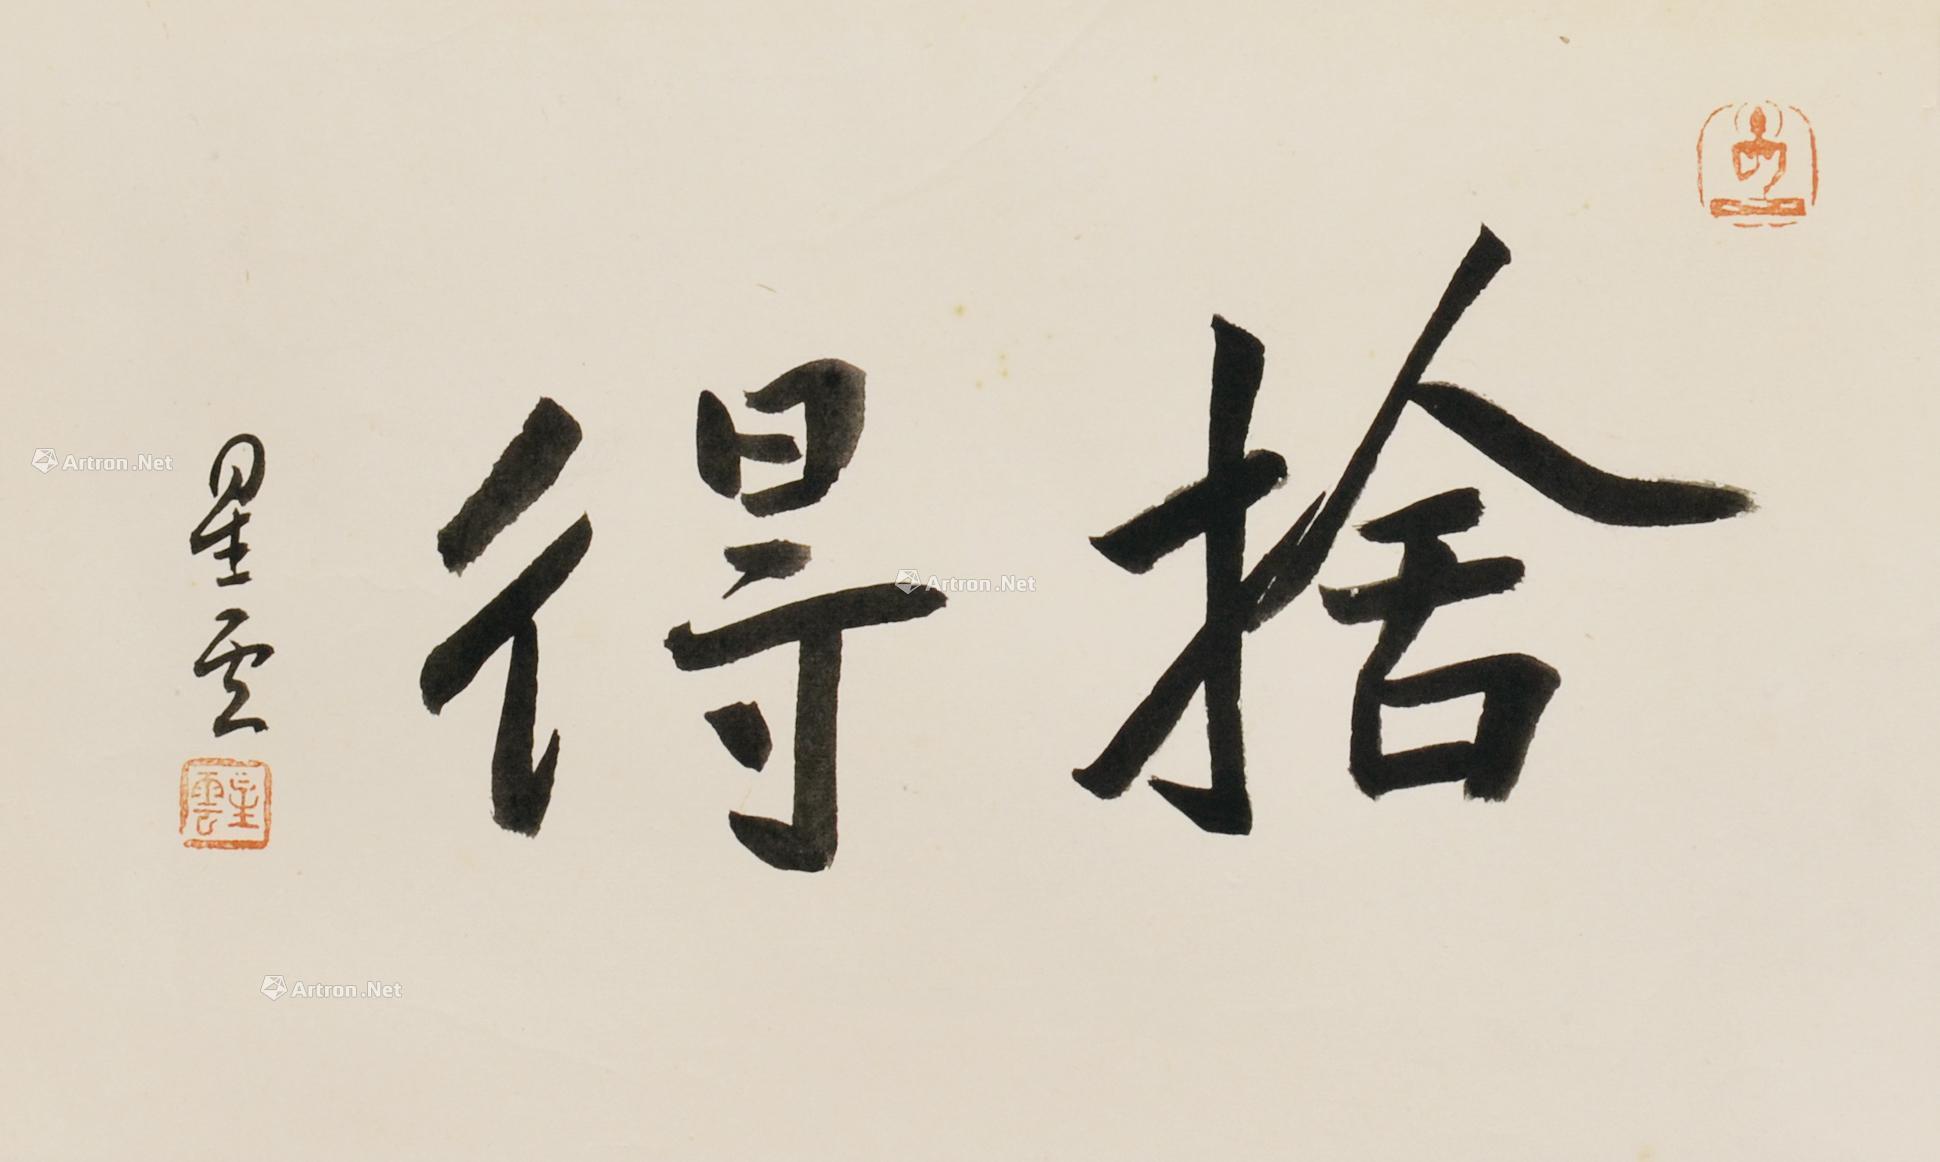 捨得
星雲
星雲
Artron.Net
Artron.Net
Artron.Net